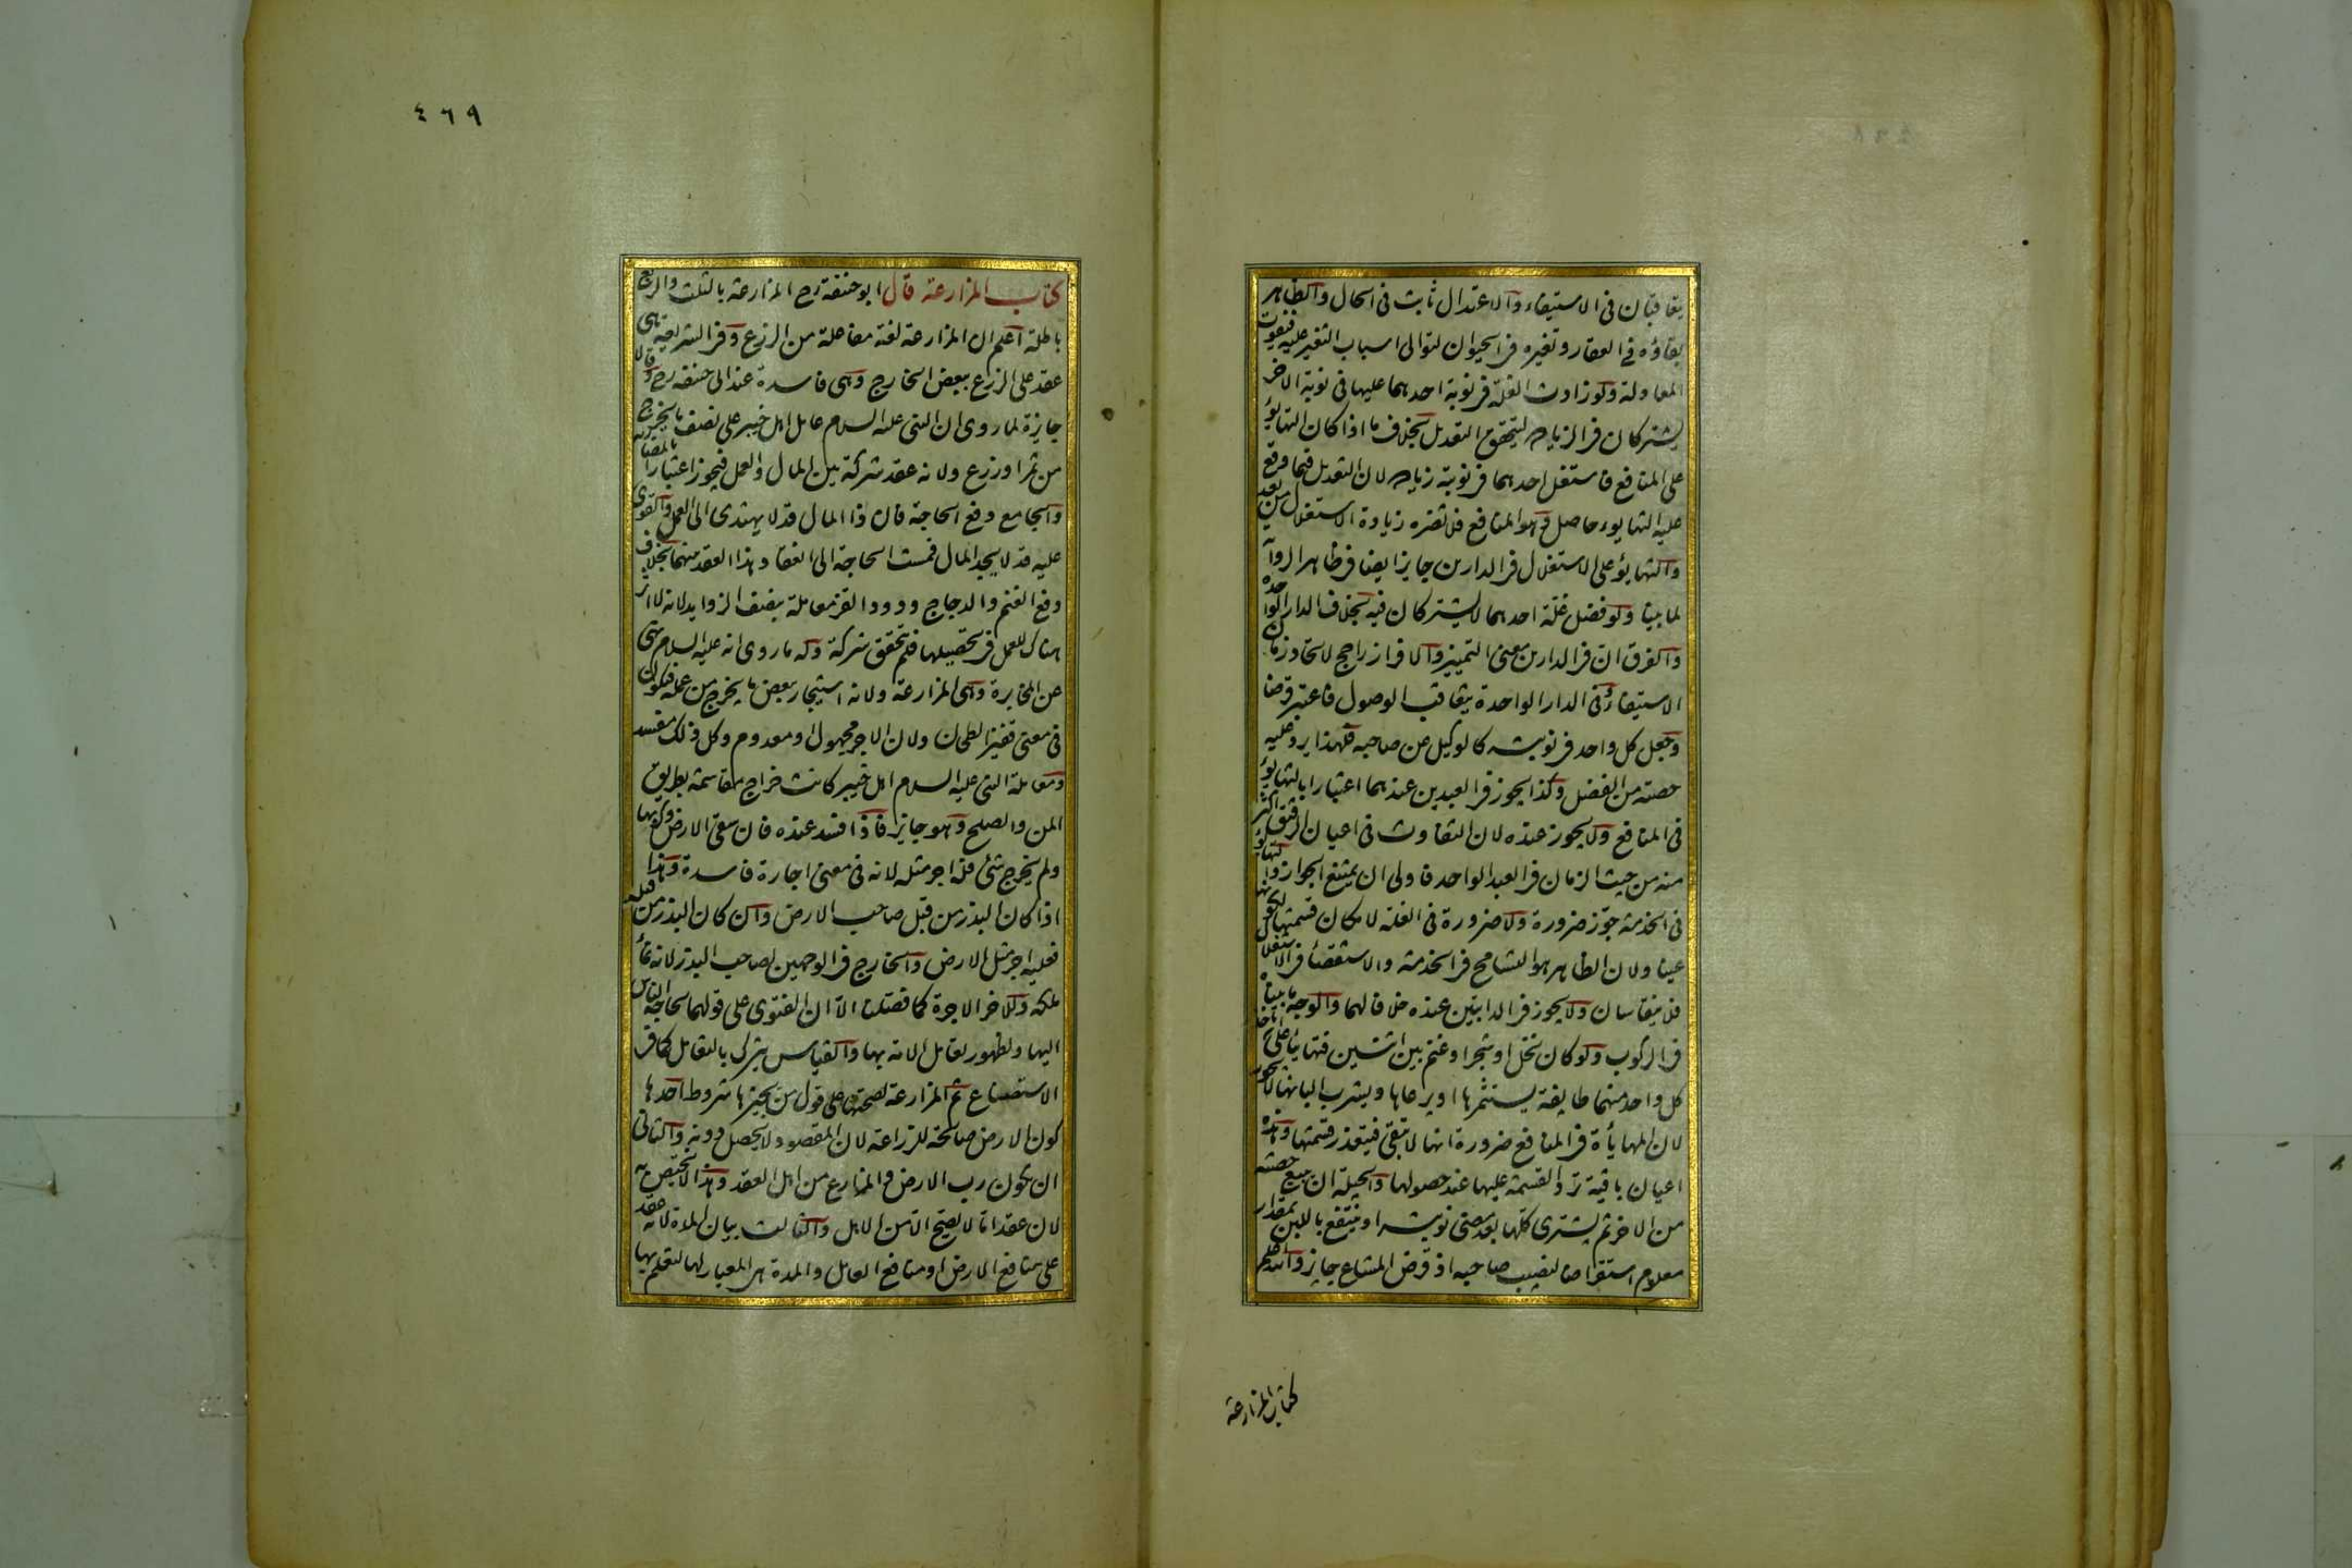 يتعاقبان في الاستيفاء والاعتدال ثابت في الحال والظاهر
بقاؤه في العقار وتغيره في الحيوان لتوالي اسباب التغير عليه فيفوت
المعادلة ولو زادت الغلة في نوبة احدهما عليها في نوبة الاخر
يشتركان في الزيادة ليتحقق التعديل بخلاف ما اذا كان التهايؤ
على المنافع فاستغل احدهما في نوبته زيادة لان التعديل فيما وقع
عليه التهايوء حاصل وهو المنافع فلا تضره زيادة الاستغلال من بعد
والتهايؤ على الاستغلال في الدارين جايز ايضا في ظاهر الرواية
لما بينا ولو فضل غلة احدهما لا يشتركان فيه بخلاف الدار الواحدة
والفرق ان في الدارين معنى التمييز والافراز راجح لاتحاد زمان
الاستيفاء وفي الدار الواحدة يتعاقب الوصول فاعتبر قرضا
وجعل كل واحد في نوبته كالوكيل عن صاحبه فلهذا يرد عليه
حصته من الفضل وكذا يجوز في العبدين عندهما اعتبارا بالتهايؤ
في المنافع ولا يجوز عنده لان التفاوت في اعيان الرقيق اكثر
منه من حيث الزمان في العبد الواحد فاولى ان يمتنع الجواز والتهايؤ
في الخدمة جوز ضرورة ولا ضرورة في الغلة لامكان قسمتها لكونها
عينا ولان الظاهر هو التسامح في الخدمة والاستقصاء في الاستغلال
فلا يتقاسان ولا يجوز في الدابتين عنده خلافا لهما والوجه ما بيناه
في الركوب ولو كان نخل او شجر او غنم بين اثنين فتهايئا على ان ياخذ
كل واحد منهما طايفة يستثمرها او يرعاها ويشرب البانها لا يجوز
لان المهايأة في المنافع ضرورة انها لا تبقى فيتعذر قسمتها وهذه
اعيان باقية ترد القسمة عليها عند حصولها والحيلة ان يبيع حصته
من الاخر ثم يشتري كلها بعد مضي نوبته او ينتفع باللبن بمقدار
معلوم استقراضا لنصيب صاحبه اذ قرض المشاع جايز والله اعلم
كتاب المزارعة
٤٦٩
كتاب المزارعة قال ابو حنيفة رح المزارعة بالثلث والربع
باطلة اعلم ان المزارعة لغة مفاعلة من الزرع وفي الشريعة هي
عقد على الزرع ببعض الخارج وهي فاسدة عند ابي حنيفة رح وقالا
جايزة لما روي ان النبي عليه السلام عامل اهل خيبر على نصف ما يخرج
من ثمر او زرع ولانه عقد شركة بين المال والعمل فيجوز اعتبارا بالمضاربة
والجامع دفع الحاجة فان ذا المال قد لا يهتدي الى العمل والقوي
عليه قد لا يجد المال فمست الحاجة الى انعقاد هذا العقد بينهما بخلاف
دفع الغنم والدجاج ودود القز معاملة بنصف الزوايد لانه لا اثر
هناك للعمل في تحصيلها فلم يتحقق شركة وله ما روي انه عليه السلام نهى
عن المخابرة وهي المزارعة ولانه استيجار ببعض ما يخرج من عمله فيكون
في معنى قفيز الطحان ولان الاجر مجهول او معدوم وكل ذلك مفسد
ومعاملة النبي عليه السلام اهل خيبر كانت خراج مقاسمة بطريق
المن والصلح وهو جايز فاذا فسد عنده فان سقى الارض وكربها
ولم يخرج شئ فله اجر مثله لانه في معنى اجارة فاسدة وهذا
اذا كان البذر من قبل صاحب الارض وان كان البذر من قبله
فعليه اجر مثل الارض والخارج في الوجهين لصاحب البذر لانه نماء
ملكه وللاخر الاجرة كما فصلنا الا ان الفتوى على قولهما لحاجة الناس
اليها ولظهور تعامل الامة بها والقياس يترك بالتعامل كما في
الاستصناع ثم المزارعة لصحتها على قول من يجيزها شروط احدها
كون الارض صالحة للزراعة لان المقصود لا يحصل دونه والثاني
ان يكون رب الارض والمزارع من اهل العقد وهذا لا يختص به
لان عقدا ما لا يصح الا من الاهل والثالث بيان المدة لانه عقد
على منافع الارض او منافع العامل والمدة هي المعيار لها لتعلم بها